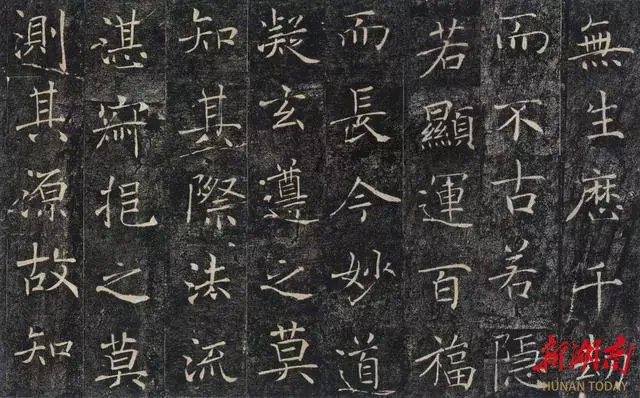 無生歷千劫
而不古若隱
若顯運百福
而長今妙道
凝玄遵之莫
知其際法流
湛寂挹之莫
測其源故知
新湖南
HUNAN TODAY